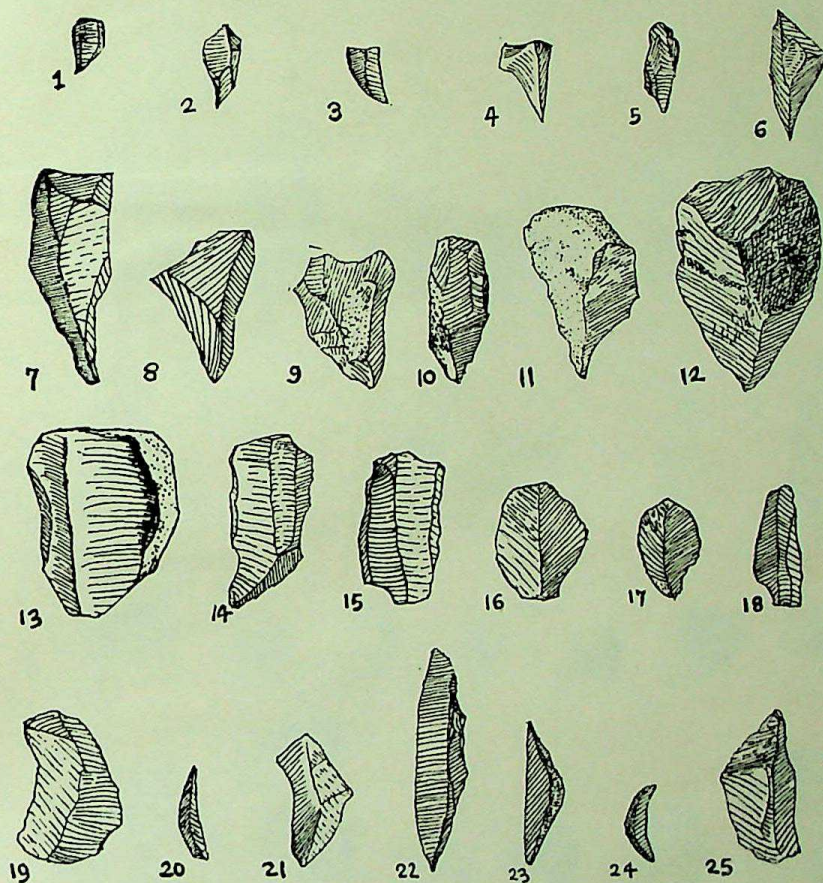 1 2 3 4 5 6
7 8 9 10 11 12
13 14 15 16 17 18
19 20 21 22 23 24 25